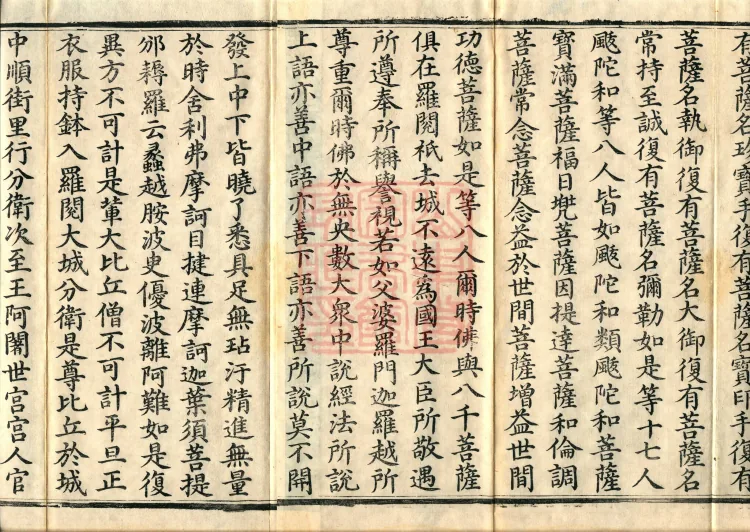 有菩薩名珍寶手復有菩薩名寶印手復有
菩薩名執御復有菩薩名大御復有菩薩名
常持至誠復有菩薩名彌勒如是等十七人
颰陀和等八人皆如颰陀和類颰陀和菩薩
寶滿菩薩福日兠菩薩因提達菩薩和倫調
菩薩常念菩薩念益於世間菩薩增益世間
功德菩薩如是等八人爾時佛與八千菩薩
俱在羅閱祇去城不遠為國王大臣所敬遇
所遵奉所稱譽視若如父婆羅門迦羅越所
尊重爾時佛於無央數大衆中說經法所說
上語亦善中語亦善下語亦善所說莫不開
發上中下皆曉了悉具足無玷汙精進無量
於時舍利弗摩訶目揵連摩訶迦葉須菩提
邠耨羅云蠡越胺波史優波離阿難如是復
異方不可計是軰大比丘僧不可計平旦正
衣服持鉢入羅閱大城分衛是尊比丘於城
中順街里行分衛次至王阿闍世宫宫人官